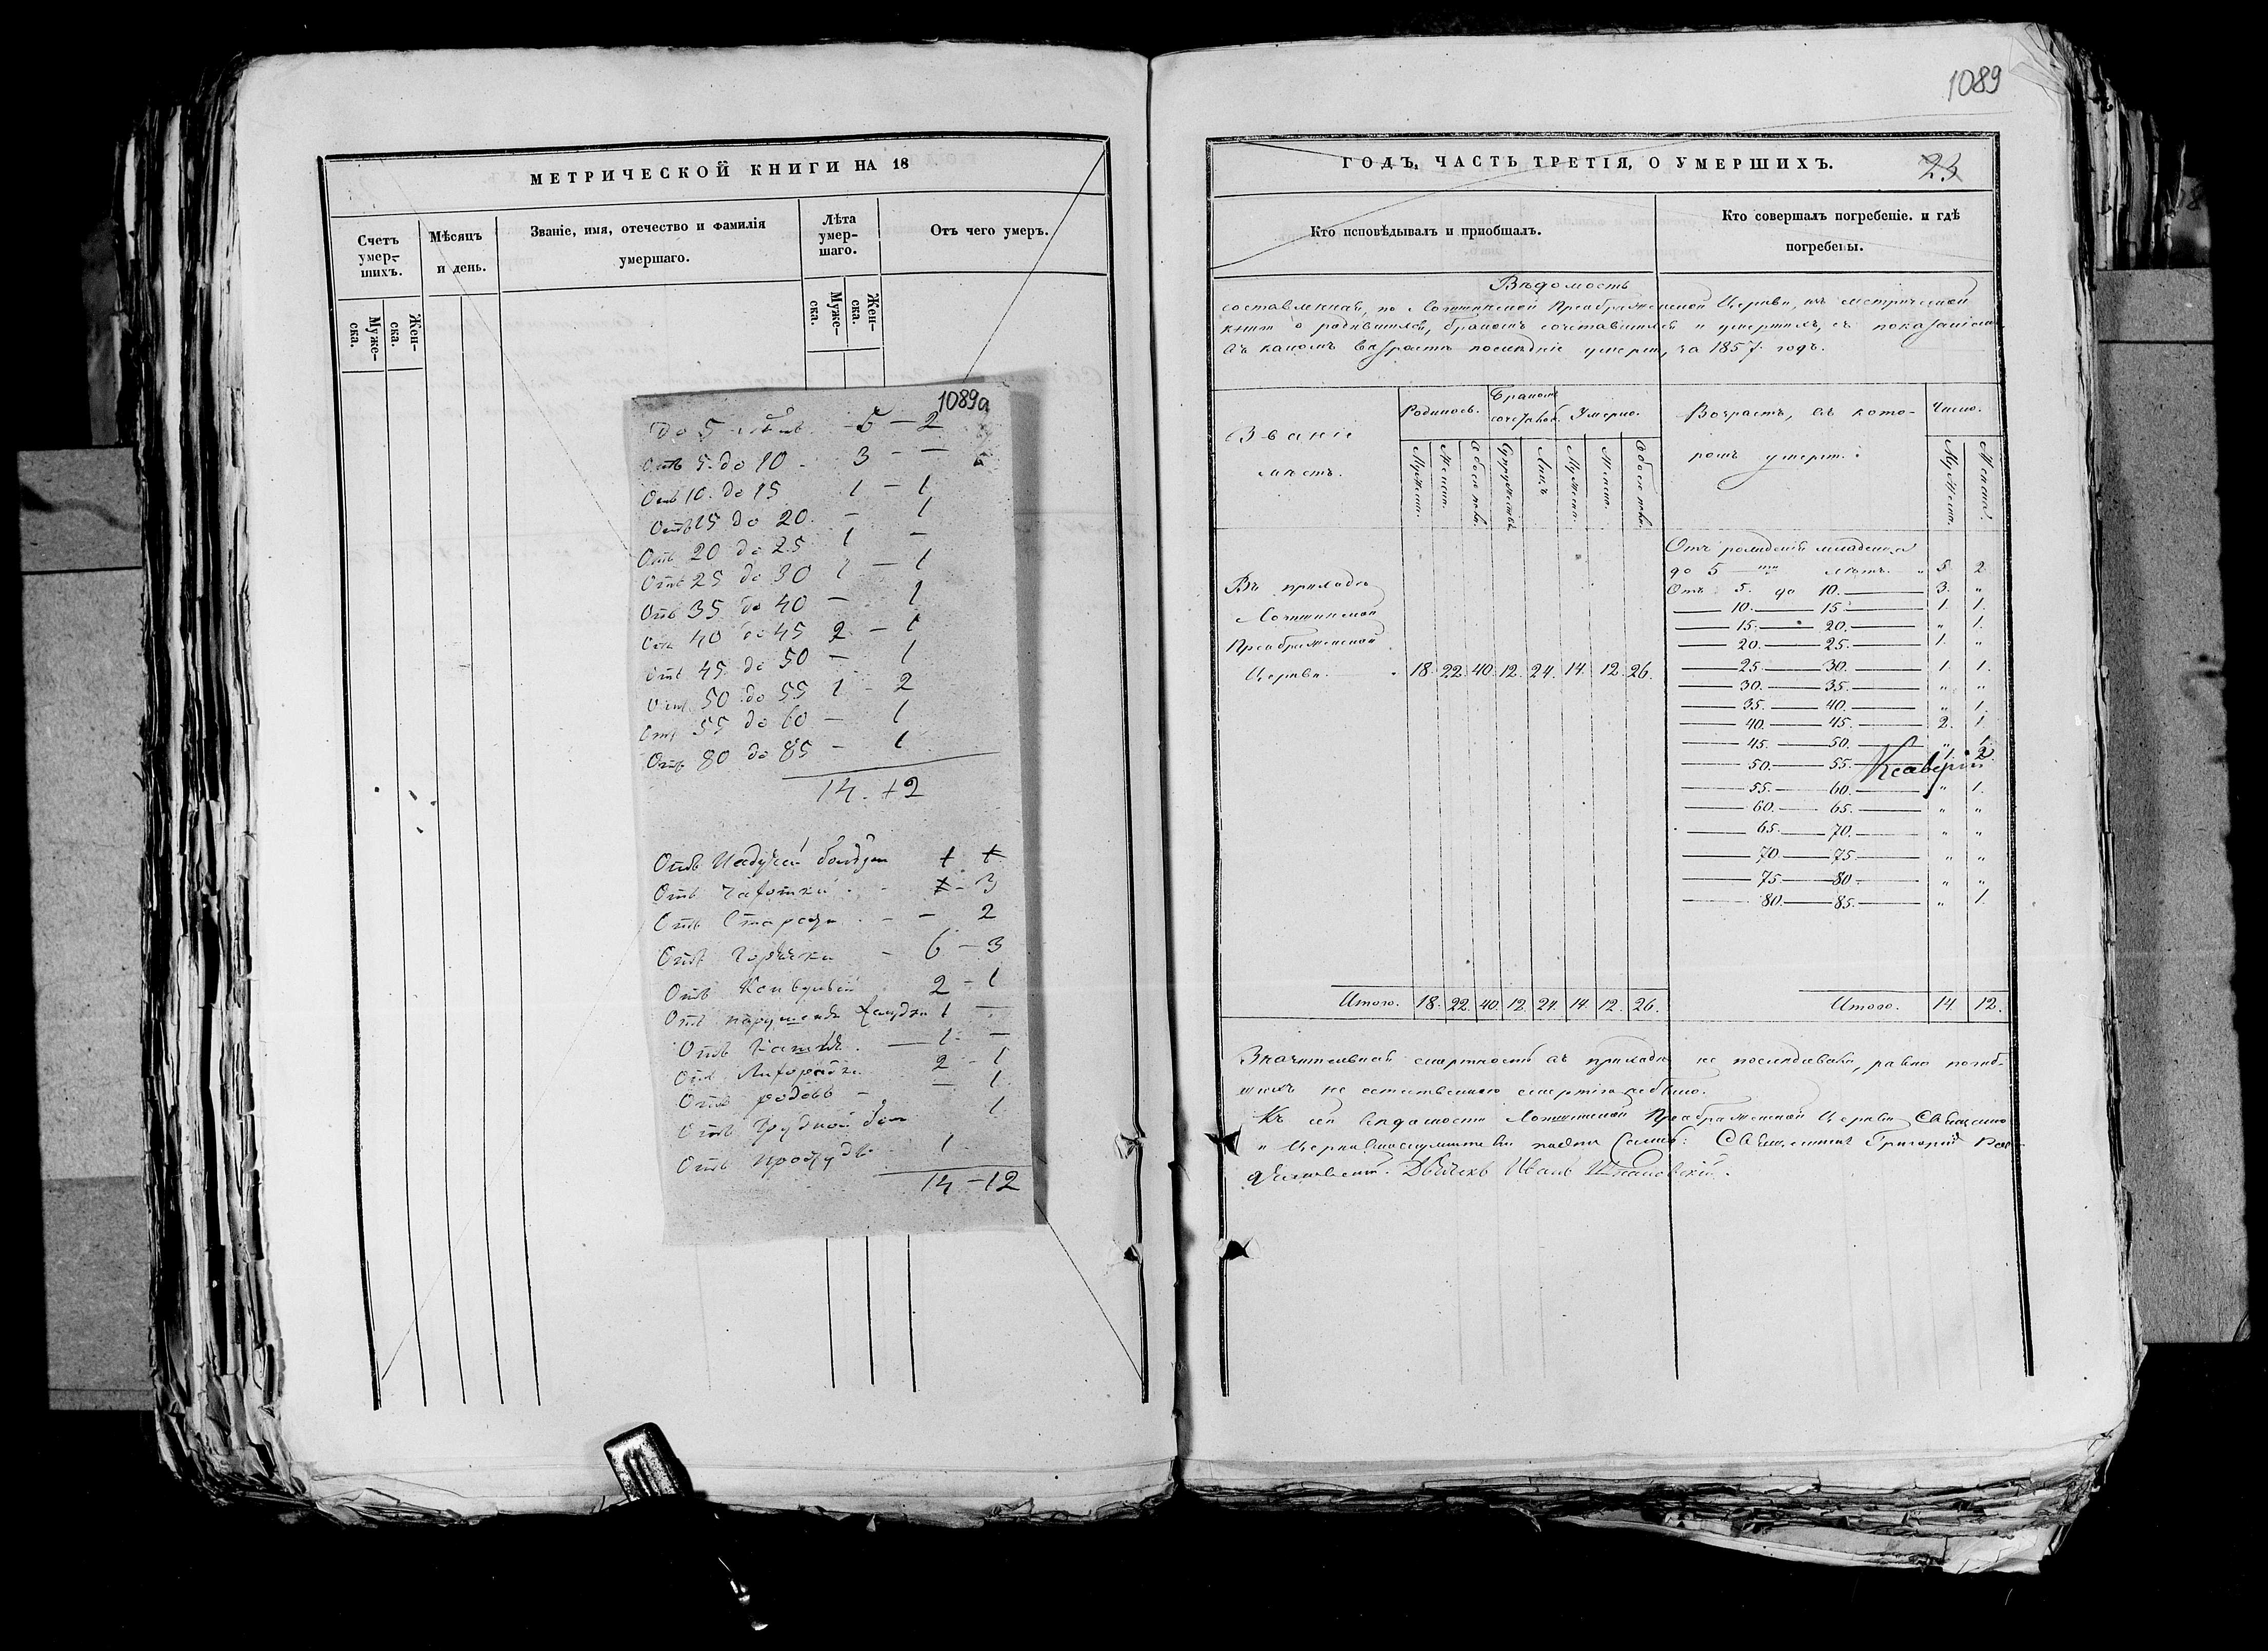 МЕТРИЧЕСКОЙ КНИГИ НА 18
Счетъ умер-шихъ.
Мѣсяцъ и день.
Званіе, имя, отечество и фамилія умершаго.
Лѣта умер-шаго.
Отъ чего умеръ.
Муже-ска.
Жен-ска.
Муже-ска.
Жен-ска.
1089а
до 5 5 — 2
Отъ 5 до 10 3 — —
Отъ 10 до 15 1 — 1
Отъ 15 до 20 — 1
Отъ 20 до 25 1 —
Отъ 25 до 30 1 — 1
Отъ 35 до 40 — 1
Отъ 40 до 45 2 — 1
Отъ 45 до 50 — 1
Отъ 50 до 55 1 — 2
Отъ 55 до 60 — 1
Отъ 80 до 85 — 1
14. 12
Отъ
Отъ Чахотки 3
Отъ Старости — — 2
Отъ Горячки — 6 — 3
Отъ Конвульсій 2 — 1
Отъ желудка 1 —
Отъ Кашля — 1 —
Отъ Лихорадки 2 — 1
Отъ родовъ — — 1
Отъ Грудной бол 1
Отъ простуды 1
14 — 12
1089
ГОДЪ, ЧАСТЬ ТРЕТІЯ, О УМЕРШИХЪ.
23
Кто исповѣдывалъ и пріобщалъ.
Кто совершалъ погребеніе. и гдѣ погребены.
Вѣдомость
составленная, по Преображенской Церкви, изъ метрической
книги о родившихся, бракомъ сочетавшихся и умершихъ, съ показаніемъ
въ какомъ возрастѣ послѣдніе умерли, за 1857 годъ.
Званіе мѣстъ.
Родилось.
Бракомъ
Умерло.
Возрастъ, въ кото-
ромъ умерли:
Число.
Мужеска.
Женска.
Обоего пола.
Супружествъ
Лицъ
Мужеска.
Женска.
Обоего пола.
Мужеска.
Женска.
Отъ рожденія младенца
до 5 ти лѣтъ. 5. 2.
Отъ 5. до 10. 3. "
10. 15. 1. 1.
15. 20. " 1.
20. 25. 1. "
25. 30. 1. 1.
30. 35. " "
35. 40. " 1.
40. 45. 2. 1.
45. 50. " 1.
50. 55. 1. 2.
55. 60. " 1.
60. 65. " "
65. 70. " "
70. 75. " "
75. 80. " "
80. 85. " 1.
Въ приходѣ
Преображенской
Церкви. 18. 22. 40. 12. 24. 14. 12. 26.
Итого. 18. 22. 40. 12. 24. 14. 12. 26.
Итого. 14. 12.
Значительной смертности въ приходѣ не послѣдовало, равно погиб-
шихъ не естественною смертію не было.
Къ сей вѣдомости Преображенской Церкви Священно
и Церковнослужители Священникъ Григорій
Дьячекъ Иванъ